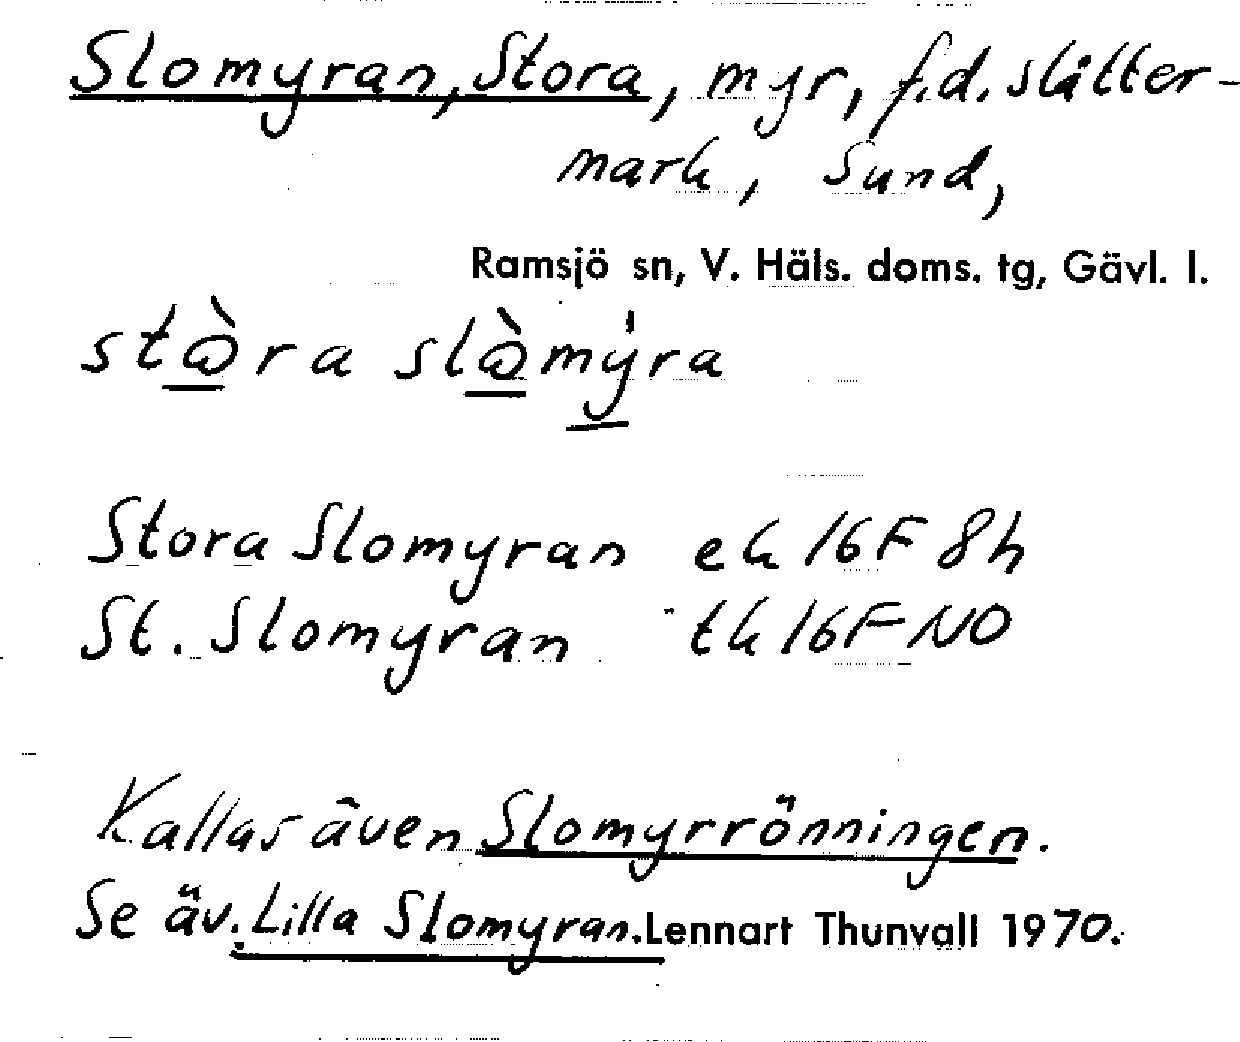 Slomyran, Stora, myr, f.d. slåtter-
mark, Sund,
Ramsjö sn, V. Häls. doms. tg, Gävl. l.
stòra slòmýra
Stora Slomyran ek 16F 8h
St. Slomyran tk 16F NO
Kallas även Slomyrrönningen.
Se äv. Lilla Slomyran. Lennart Thunvall 1970.